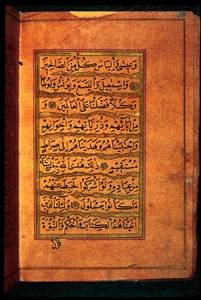 وعيسى والياس كل من الصالحين
واسمعيل واليسع ويونس ولوطا
وكلا فضلنا على العالمين و
من آبائهم وذرياتهم واخوانهم
واجتبيناهم وهديناهم الى صراط
مستقيم ذلك هدى الله يهدي به من يشاء
من عباده ولو اشركوا لحبط عنهم
ما كانوا يعملون اولئك الذين
آتيناهم الكتاب والحكم والنبوة
فان